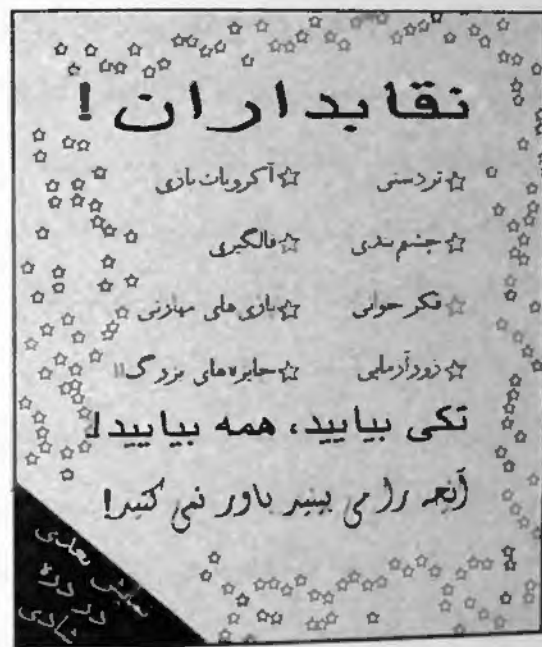 نقابداران!
☆تردستی ☆آکروبات بازی
☆چشم بندی ☆فالگیری
☆فکر خوانی ☆بازی های مهارتی
☆زورآزمایی ☆جایزه های بزرگ!!
تکی بیایید، همه بیایید!
آنچه را می بینید باور نمی کنید!
نمایش
در دره
شادی